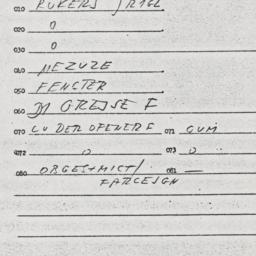 010 RUKERS JR16L
020 0
030 0
040 MEZUZE
050 FENSTER
060 DI GREJSE F
070 CU DER OFENER F 071 GUM
072 0 073 0
080 ORGESTMICT/ 081 —
FARCEJGN